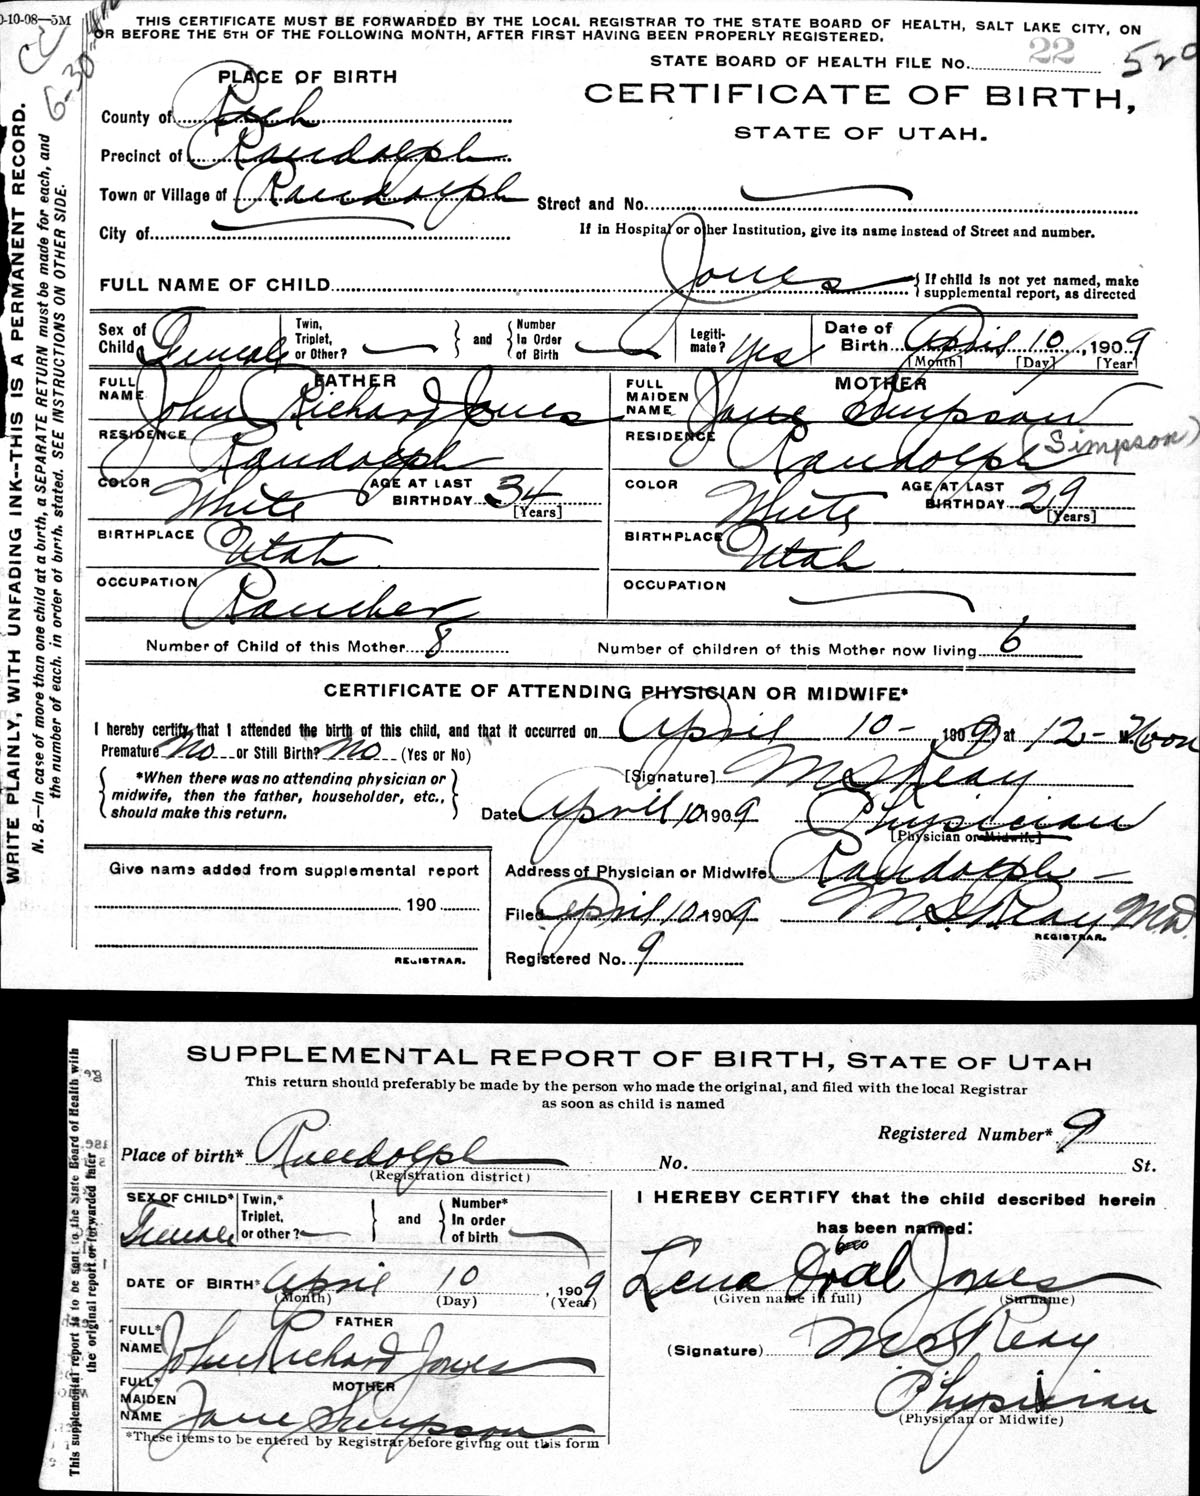 0-10-08—5M
THIS CERTIFICATE MUST BE FORWARDED BY THE LOCAL REGISTRAR TO THE STATE BOARD OF HEALTH, SALT LAKE CITY, ON
OR BEFORE THE 5TH OF THE FOLLOWING MONTH, AFTER FIRST HAVING BEEN PROPERLY REGISTERED.
STATE BOARD OF HEALTH FILE No. 22 529
6-30
WRITE PLAINLY, WITH UNFADING INK--THIS IS A PERMANENT RECORD.
N. B.—In case of more than one child at a birth, a SEPARATE RETURN must be made for each, and
the number of each, in order of birth, stated. SEE INSTRUCTIONS ON OTHER SIDE.
PLACE OF BIRTH
CERTIFICATE OF BIRTH,
STATE OF UTAH.
County of Rich
Precinct of Randolph
Town or Village of Randolph
Street and No.
City of
If in Hospital or other Institution, give its name instead of Street and number.
FULL NAME OF CHILD Jones { If child is not yet named, make
supplemental report, as directed
Sex of Child Female
Twin, Triplet, or Other?
and
Number In Order of Birth
Legiti-mate? Yes
Date of Birth April 10, 1909
[Month] [Day] [Year]
FATHER
FULL NAME John Richard Jones
RESIDENCE Randolph
COLOR White AGE AT LAST BIRTHDAY 34
[Years]
BIRTHPLACE Utah
OCCUPATION Rancher
MOTHER
FULL MAIDEN NAME Jane Simpson
RESIDENCE Randolph (Simpson)
COLOR White AGE AT LAST BIRTHDAY 29
[Years]
BIRTHPLACE Utah
OCCUPATION
Number of Child of this Mother 8 Number of children of this Mother now living 6
CERTIFICATE OF ATTENDING PHYSICIAN OR MIDWIFE*
I hereby certify that I attended the birth of this child, and that it occurred on April 10-, 1909 at 12- Noon
Premature No or Still Birth? No (Yes or No)
{ *When there was no attending physician or
midwife, then the father, householder, etc.,
should make this return. }
[Signature] M S Reay
Date April 10 1909 Physician
[Physician or Midwife]
Address of Physician or Midwife Randolph -
Give name added from supplemental report
190
REGISTRAR.
Filed April 10 1909 M. S. Reay MD.
REGISTRAR.
Registered No. 9
SUPPLEMENTAL REPORT OF BIRTH, STATE OF UTAH
This return should preferably be made by the person who made the original, and filed with the local Registrar
as soon as child is named
This supplemental report is to be sent to the State Board of Health with
the original report or forwarded later
Registered Number* 9
Place of birth* Randolph No. St.
(Registration district)
SEX OF CHILD* Female
Twin,* Triplet, or other?
and
Number* In order of birth
DATE OF BIRTH* April 10, 1909
(Month) (Day) (Year)
FATHER
FULL* NAME John Richard Jones
MOTHER
FULL* MAIDEN NAME Jane Simpson
*These items to be entered by Registrar before giving out this form
I HEREBY CERTIFY that the child described herein
has been named:
Lena Oral Jones
(Given name in full) (Surname)
(Signature) M S Reay
Physician
(Physician or Midwife)